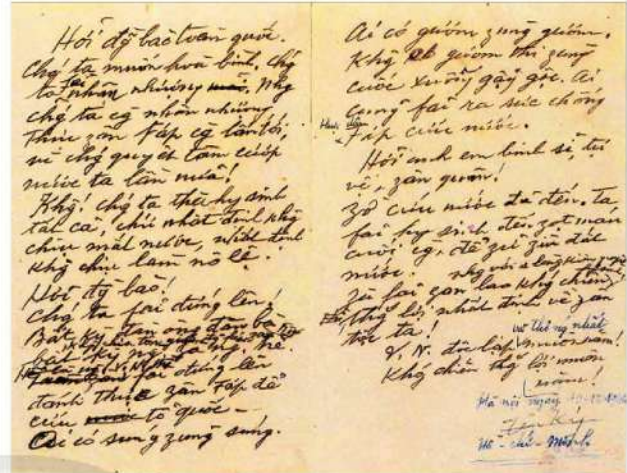 Hỡi đg̃ bào toàn quốc.
Chúg ta muốn hoà bình, chúg
ta fải nhân nhượng. Nhg
chúg ta cg̀ nhân nhượng
thực zân Fáp cg̀ lấn tới,
vì chúg quyết tâm cướp
nước ta lần nữa!
Khg! chúg ta thà hy sinh
tất cả, chứ nhất định khg
chịu mất nước, nhất định
khg chịu làm nô lệ.
Hỡi đg̀ bào!
Chúg ta fải đứng lên!
Bất kỳ đàn ông đàn bà
bất kỳ ng. già ng. trẻ.
fải đứng lên
đánh thực zân Fáp để
cứu tổ quốc –
Ai có súng zùng súng.
Ai có gươm zùng gươm.
Khg có gươm thì zùng
cuốc xuổng gậy gộc. Ai
cũng fải ra sức chống
Fáp cứu nước.
Hỡi anh em binh sĩ, tự
vệ, zân quân!
Zờ cứu nước đã đến. Ta
fải hy sinh đến zọt máu
cuối cg̀, để zữ zìn đất
nước.
Zù fải gian lao khg chiến
thg lợi nhất định về zân
tộc ta!
V. N. độc lập và thống nhất muôn năm!
Khg chiến thg lợi muôn
năm!
Hà nội ngày
Hồ-chí-Minh